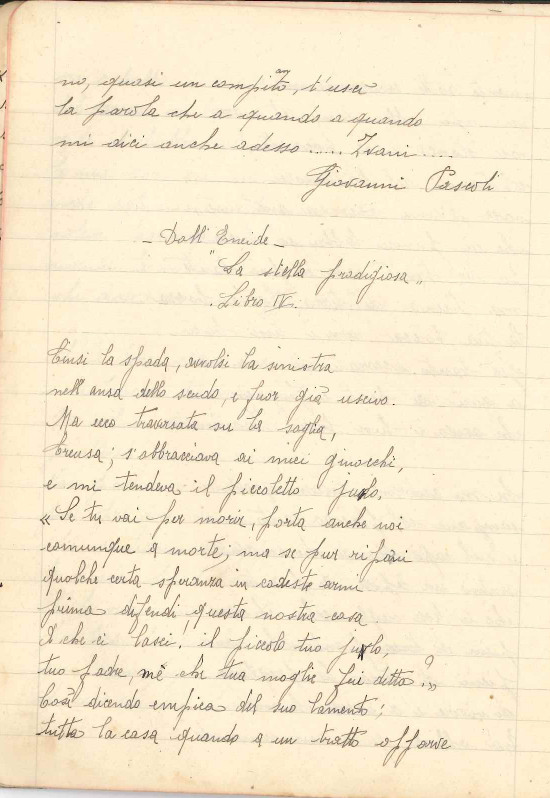 no, quasi un compitan, t'uscì
la parola che a quando a quando
mi dici anche adesso ..... Zvanì .....
Giovanni Pascoli
- Dall'Eneide -
"La stella prodigiosa"
. Libro IV.
Cinsi la spada, avvolsi la sinistra
nell'ansa dello scudo, e fuor già uscivo.
Ma ecco traversata su la soglia,
Creusa; s'abbracciava ai miei ginocchi,
e mi tendeva il piccoletto Julo.
« Se tu vai per morir, porta anche noi
comunque a morte; ma se pur riponi
qualche certa speranza in codeste armi
prima difendi, questa nostra casa.
A che ci lasci! il piccolo tuo Julo,
tuo padre, me che tua moglie fui detta? »
Così dicendo empiva del suo lamento:
tutta la casa quando a un tratto apparve